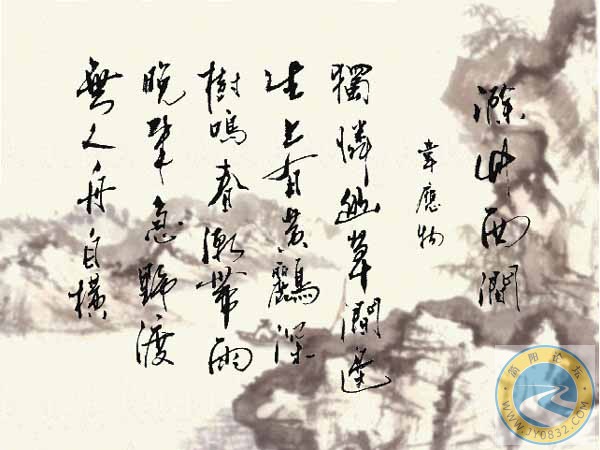 滁州西澗
韋應物
獨憐幽草澗邊
生上有黃鸝深
樹鳴春潮帶雨
晚來急野渡
無人舟自橫
简阳论坛
WWW.JY0832.COM